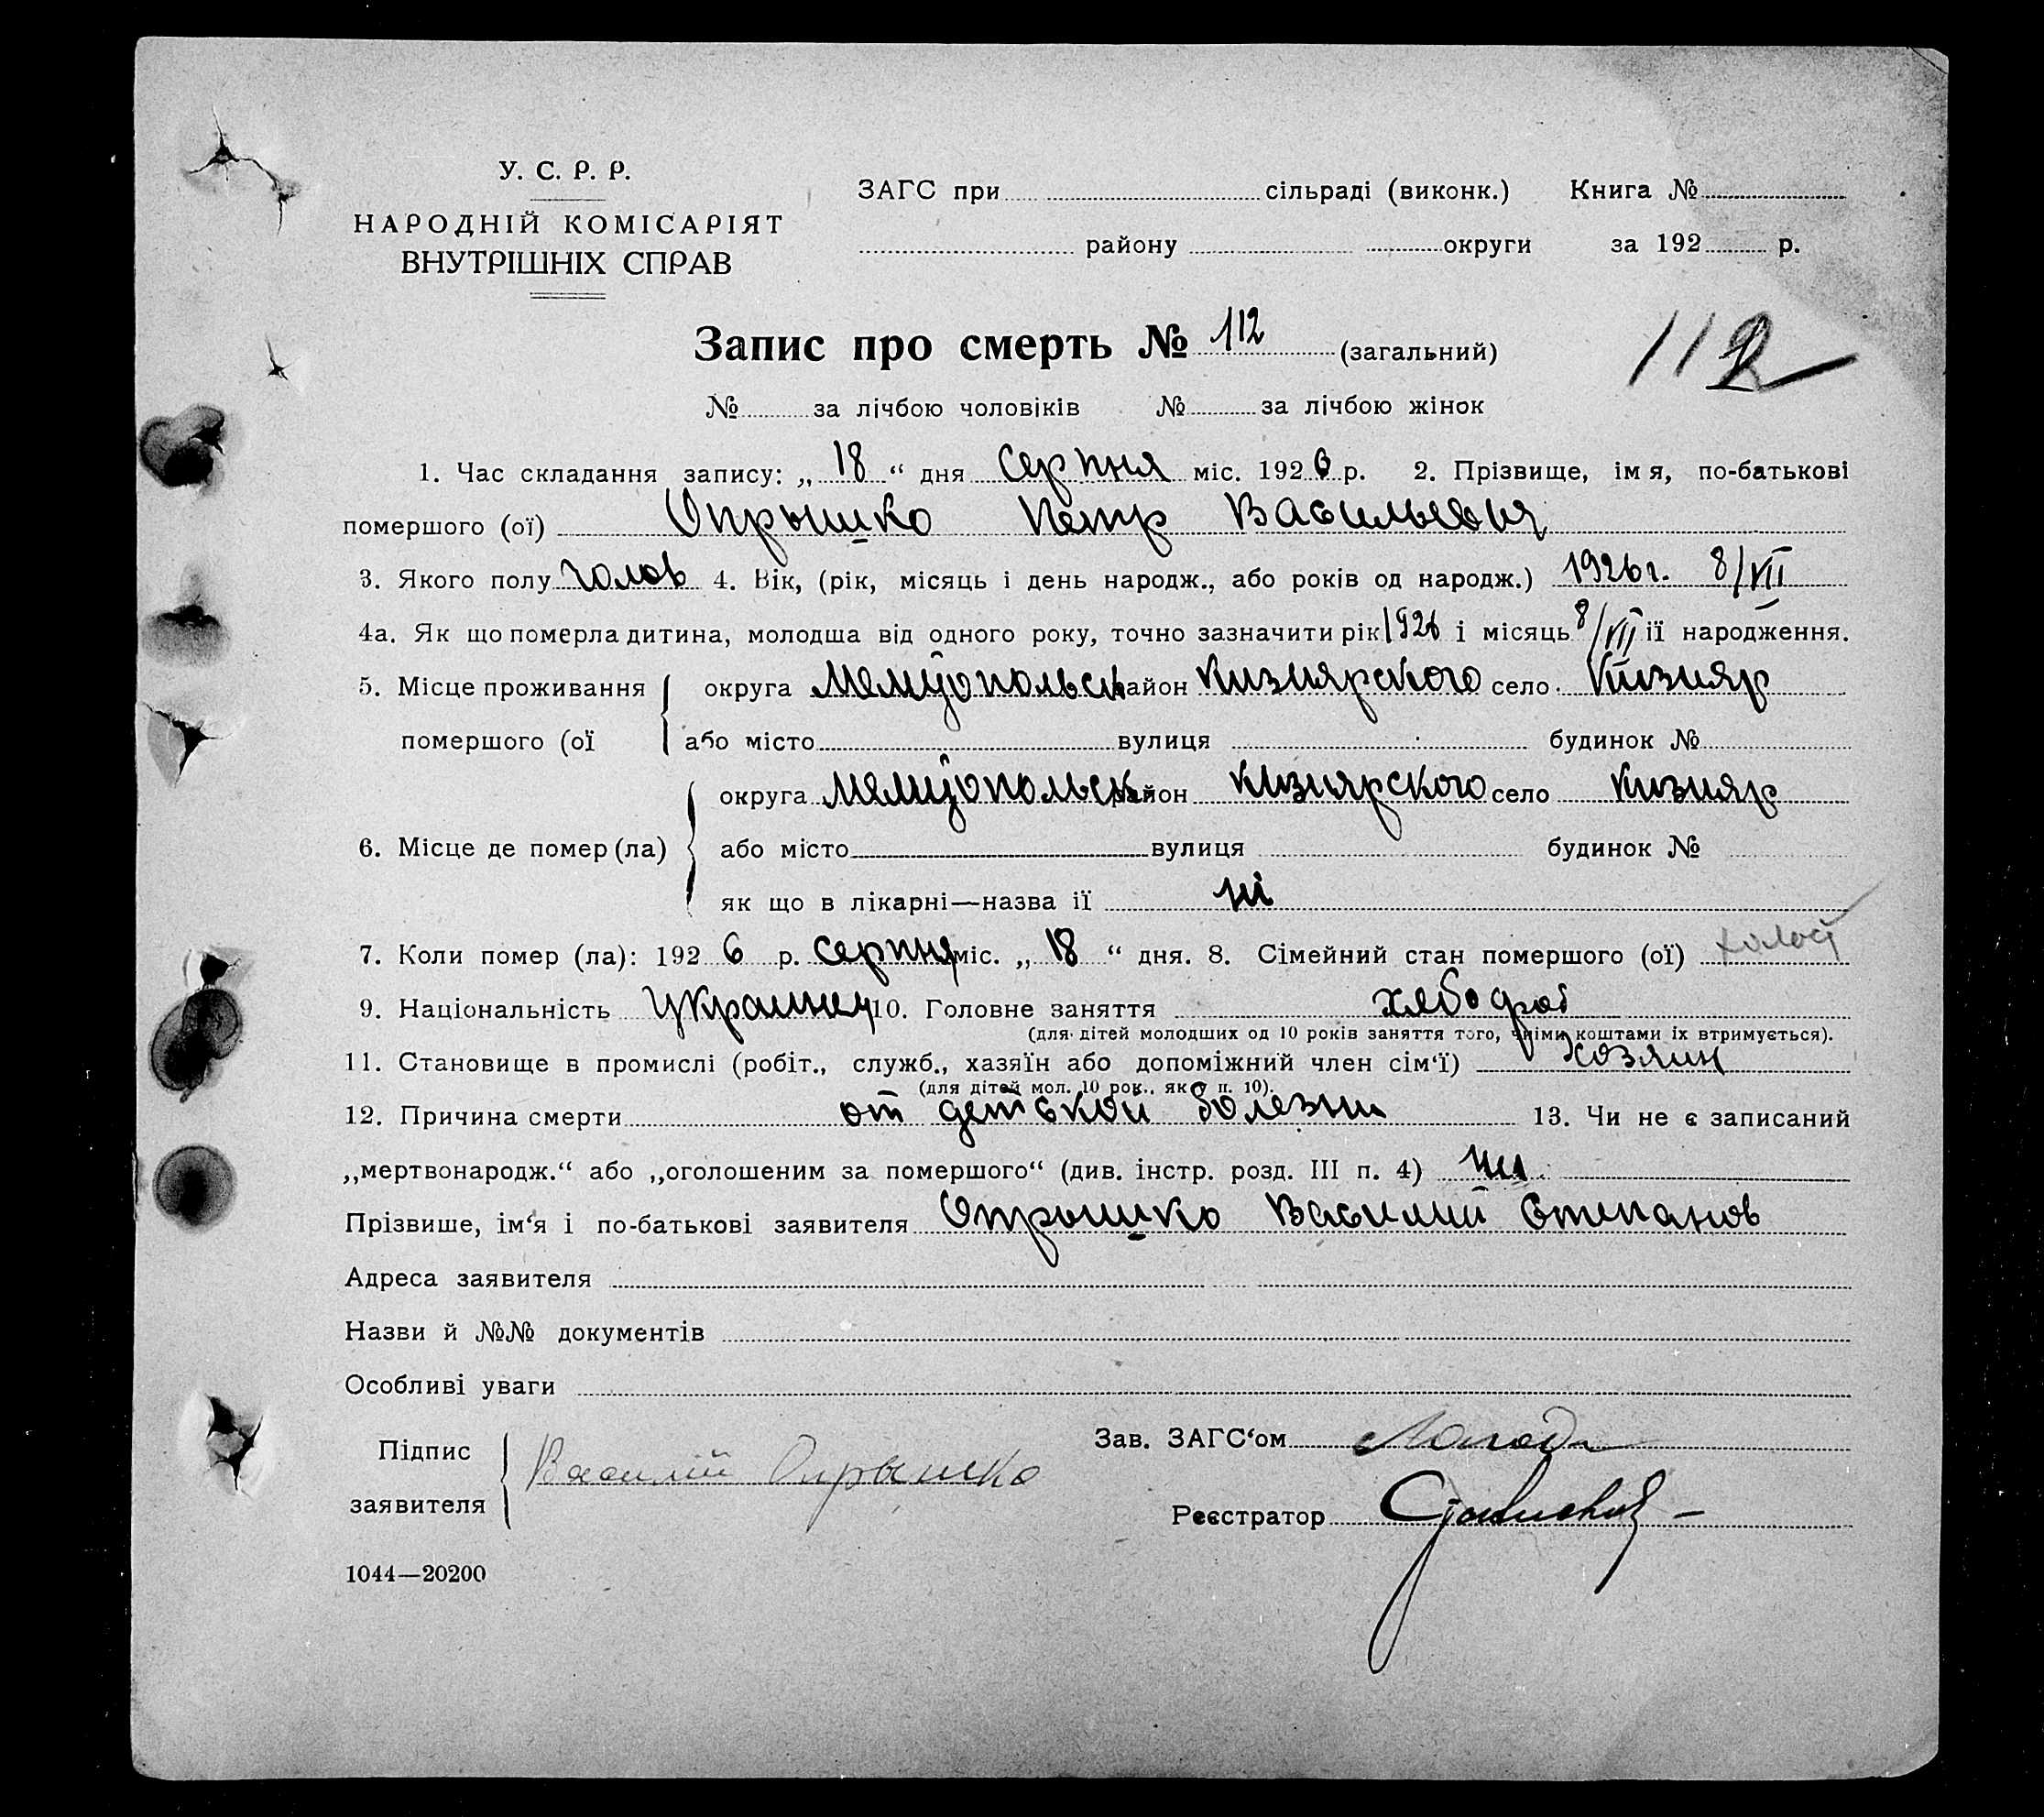 У. С. Р. Р.
НАРОДНІЙ КОМІСАРІЯТ
ВНУТРІШНІХ СПРАВ
ЗАГС при сільраді (виконк.) Книга №
району округи за 192 р.
Запис про смерть № 112 (загальний)
112
№ за лічбою чоловіків № за лічбою жінок
1. Час складання запису: „ 18 “ дня серпня міс. 1926 р. 2. Прізвище, імя, по-батькові
помершого (ої) Опрышко Петр Васильевия
3. Якого полу чолов 4. Вік, (рік, місяць і день народж., або років од народж.) 1926 г. 8/VII
4а. Як що померла дитина, молодша від одного року, точно зазначити рік 1926 і місяць 8/VII її народження.
5. Місце проживання округа Мелитопольск район Кизиярского село Кизияр
помершого (ої або місто вулиця будинок №
округа Мелитопольск район Кизиярского село Кизияр
6. Місце де помер (ла) або місто вулиця будинок №
як що в лікарні—назва її ні
7. Коли помер (ла): 1926 р. серпня міс. „ 18 “ дня. 8. Сімейний стан помершого (ої) холост
9. Національність украинец 10. Головне заняття хлебороб
(для дітей молодших од 10 років заняття того, чиїми коштами їх втримується).
11. Становище в промислі (робіт., служб., хазяїн або допоміжний член сім‘ї) хозяин
(для дітей мол. 10 рок., як у п. 10).
12. Причина смерти от детской болезни 13. Чи не є записаний
„мертвонародж.“ або „оголошеним за помершого“ (див. інстр. розд. III п. 4) ни
Прізвише, ім‘я і по-батькові заявителя Опрышко Василий Степанов
Адреса заявителя
Назви й №№ документів
Особливі уваги
Підпис
заявителя Василій Опрышко
Зав. ЗАГС‘ом
Реєстратор
1044—20200